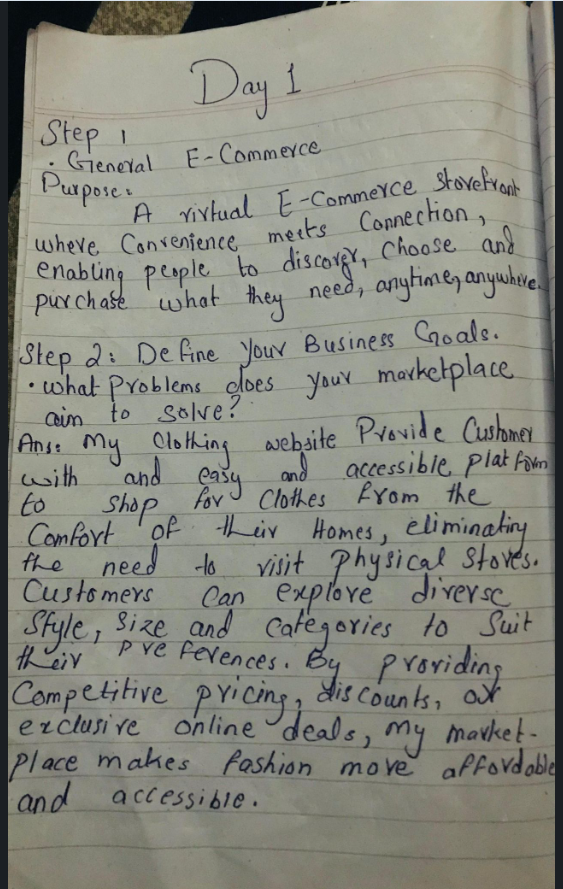 Day 1
Step 1
• General E-Commerce
Purpose:
A virtual E-Commerce Storefront
where Convenience meets Connection,
enabling people to discover, Choose and
purchase what they need, anytime, anywhere.
Step 2: Define Your Business Goals.
• what Problems does your marketplace
aim to solve?
Ans: My Clothing website Provide Customer
with and easy and accessible platform
to Shop for Clothes from the
Comfort of their Homes, eliminating
the need to visit Physical Stores.
Customers Can explore diverse
Style, Size and Categories to Suit
their Preferences. By providing
Competitive pricing, discounts, or
exclusive online deals, my market-
place makes fashion more affordable
and accessible.